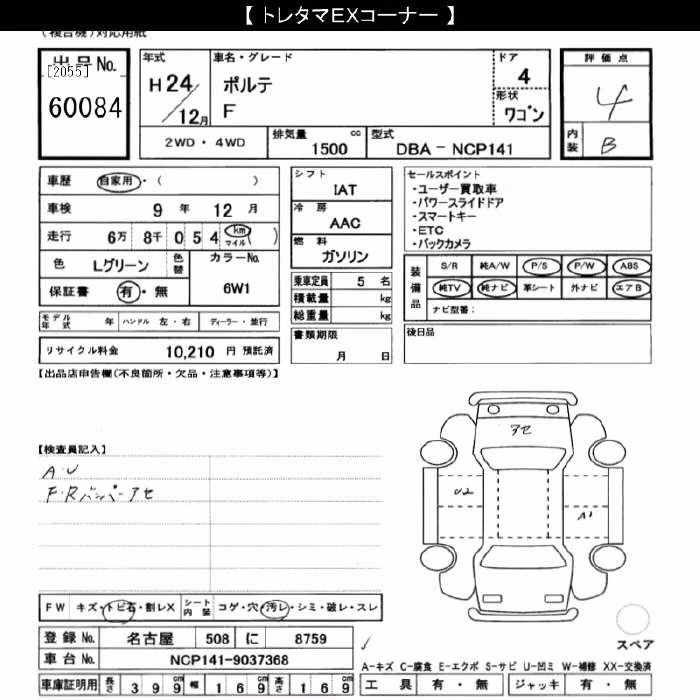 【 トレタマEXコーナー 】
(複合機)対応用紙
出品No.
[2055]
60084
年式
H24/12月
車名・グレード
ポルテ
F
ドア
4
形状
ワゴン
評価点
4
内装 B
2WD・4WD
排気量 1500 cc
型式 DBA-NCP141
車歴 自家用・( )
車検 9年 12月
走行 6万 8千 0 5 4 km マイル ( )
色 Lグリーン 色替
カラーNo. 6W1
保証書 有・無
モデル年式 年 ハンドル 左・右 ディーラー・並行
リサイクル料金 10,210 円 預託済
シフト
IAT
冷房
AAC
燃料
ガソリン
乗車定員 5 名
積載量 kg
総重量 kg
書類期限
月 日
セールスポイント
・ユーザー買取車
・パワースライドドア
・スマートキー
・ETC
・バックカメラ
装備品
S/R 純A/W P/S P/W ABS
純TV 純ナビ 革シート 外ナビ エアB
ナビ型番：
後日品
【出品店申告欄(不良箇所・欠品・注意事項等)】
【検査員記入】
A・U
F・Rバンパーアセ
アセ
U2
A1
FW キズ・トビ石・割レX
シート内装 コゲ・穴・汚レ・シミ・破レ・スレ
登録No. 名古屋 508 に 8759
車台No. NCP141-9037368
車庫証明用 長さ 399cm 幅 169cm 高さ 169cm
スペア
A-キズ C-腐食 E-エクボ S-サビ U-凹ミ W-補修 XX-交換済
工具 有・無 ジャッキ 有・無